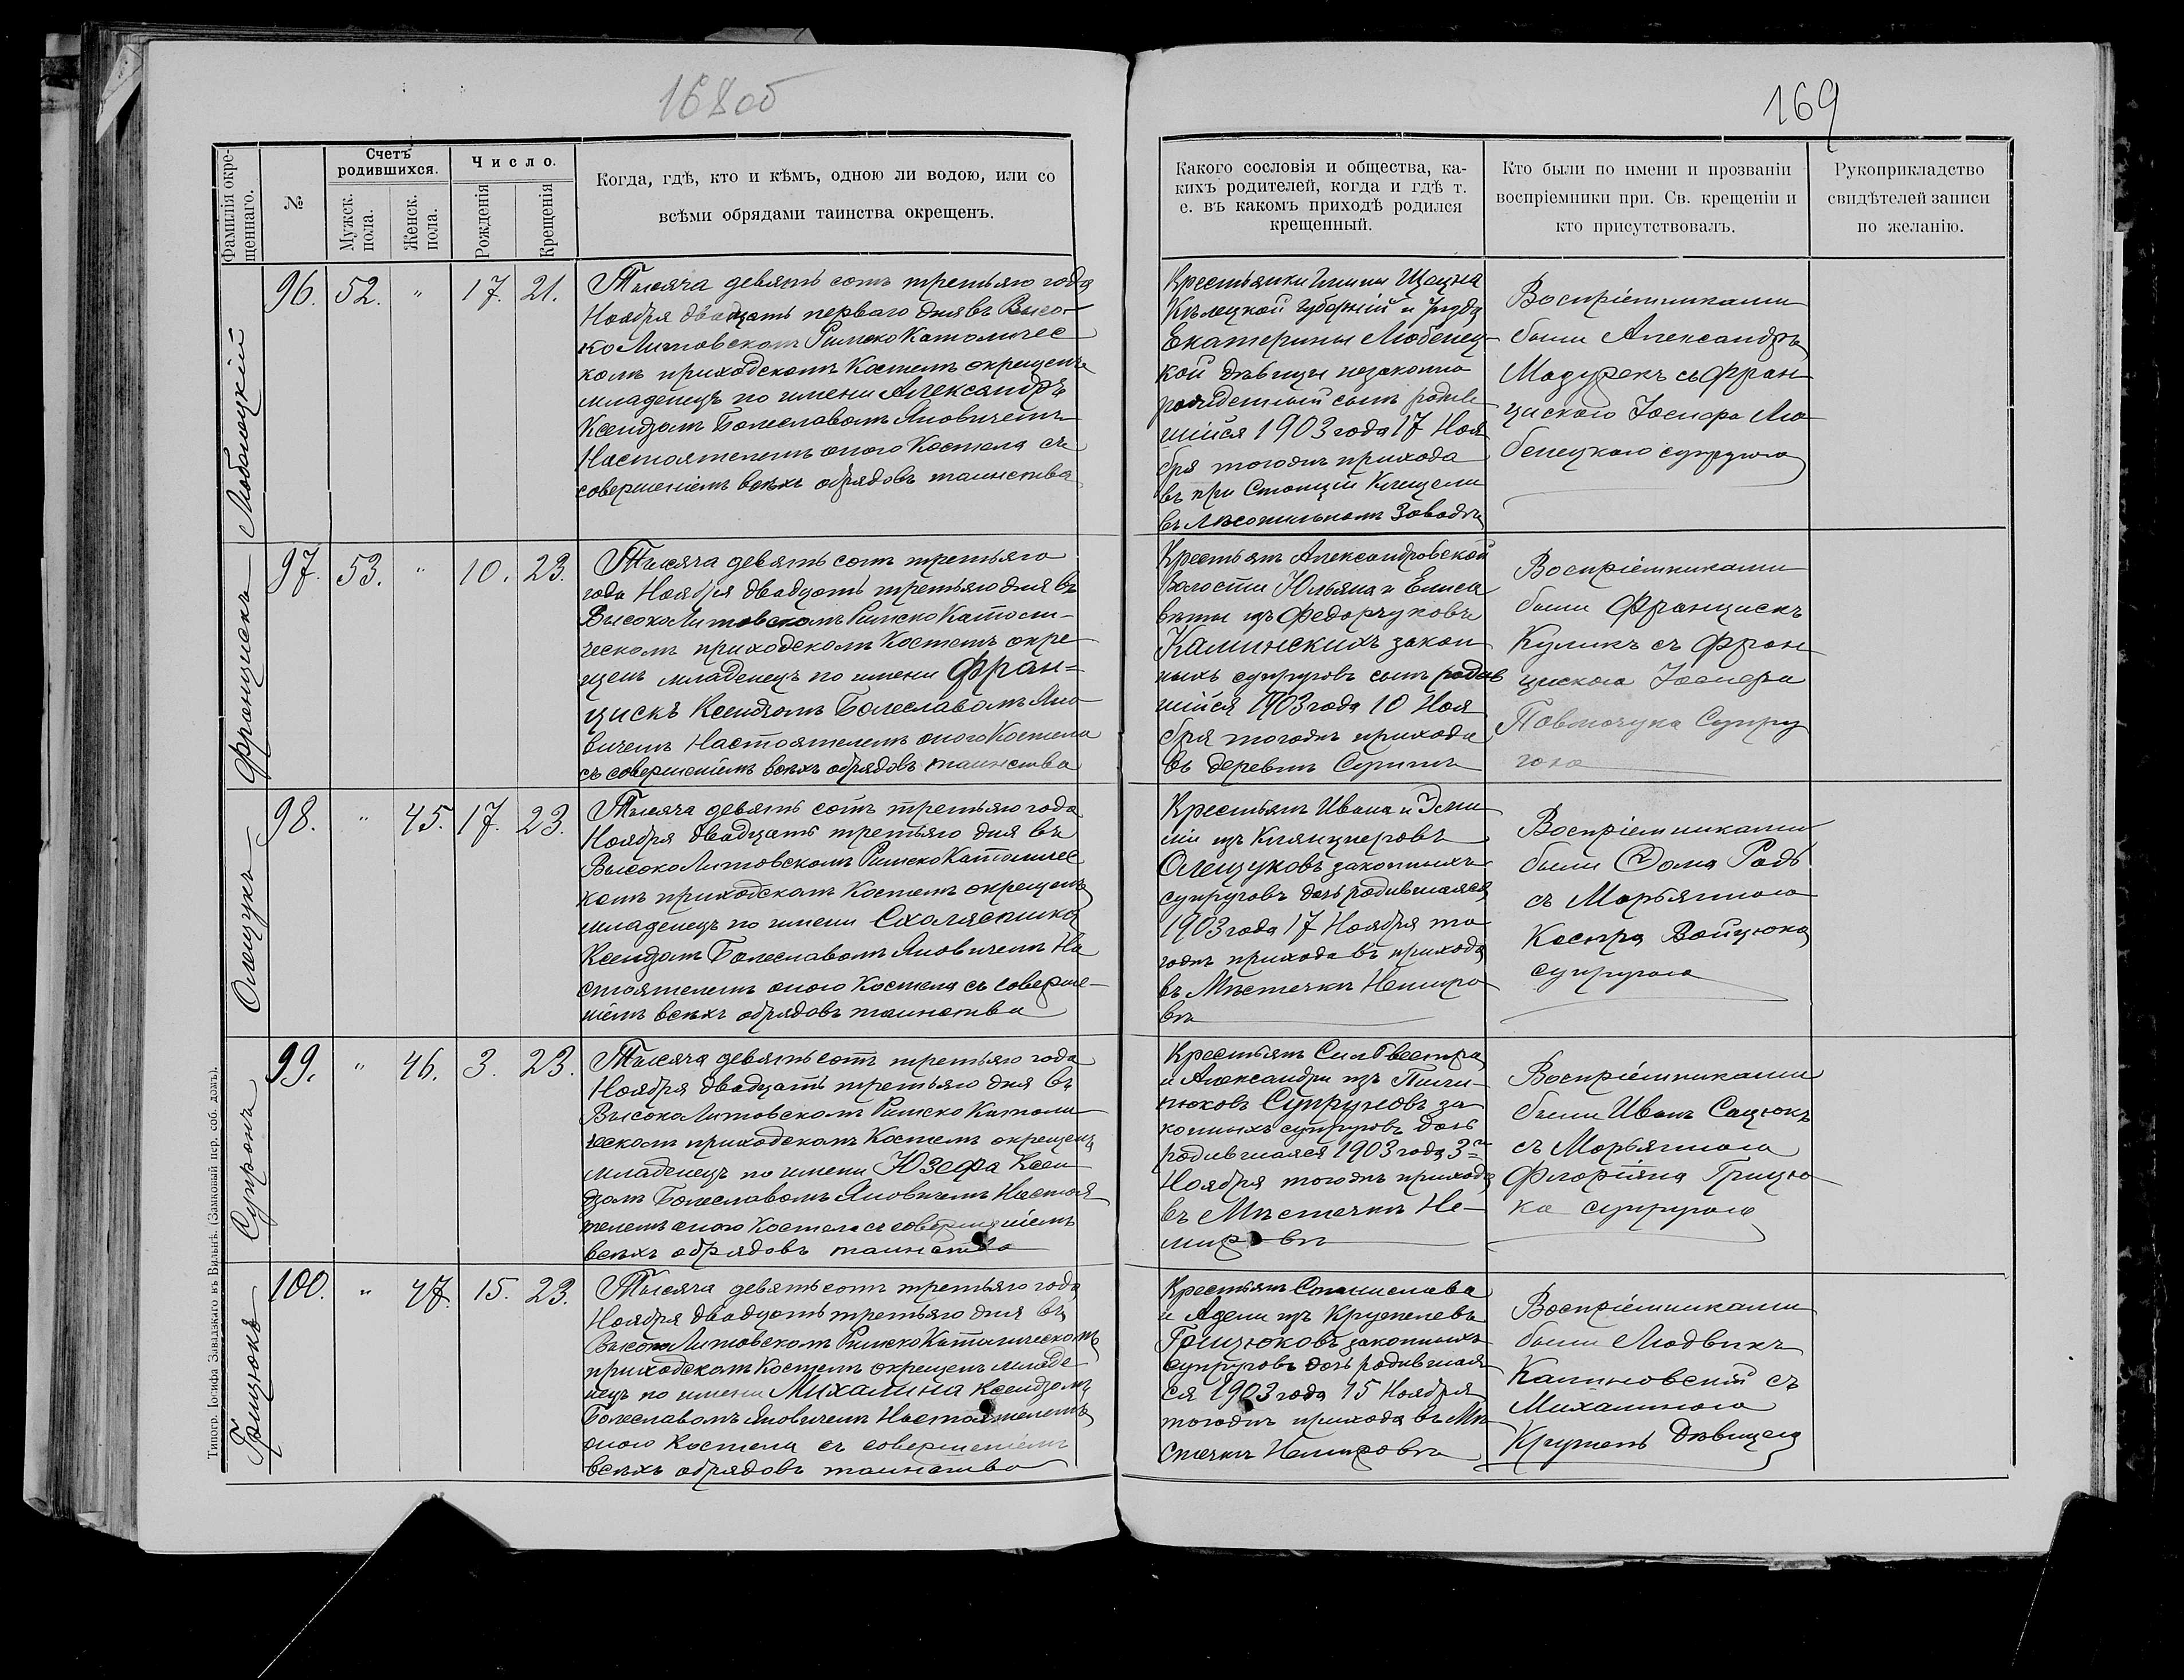 168об
169
Фамилія окре-
щеннаго.
№
Счетъ
родившихся.
Мужск.
пола.
Женск.
пола.
Число.
Рожденія
Крещенія
Когда, гдѣ, кто и кѣмъ, одною ли водою, или со
всѣми обрядами таинства окрещенъ.
Какого сословія и общества, ка-
кихъ родителей, когда и гдѣ т.
е. въ какомъ приходѣ родился
крещенный.
Кто были по имени и прозванію
воспріемники при. Св. крещеніи и
кто присутствовалъ.
Рукоприкладство
свидѣтелей записи
по желанію.
Любенецкій
96. 52. " 17. 21.
Тысяча девять сотъ третьяго года
Ноября двадцать перваго дня въ Высо-
ко Литовскомъ Римско Католичес
комъ приходскомъ Костелѣ окрещенъ
младенецъ по имени Александръ
Ксендзомъ Болеславомъ Яновичемъ
Настоятелемъ оного Костела съ
совершеніемъ всѣхъ обрядовъ таинства
Крестьянки Гмины
Кѣлецкой Губерній и Уѣзда
Екатерины Любенец-
кой дѣвицы незаконно
рожденный сынъ родив
шійся 1903 года 17 Ноя
бря тогожъ прихода
въ при Станціи Клещели
въ Лѣсопильномъ Заводѣ
Воспріемниками
были Александръ
Мазурекъ съ Фран
циского Іосифа Лю
бенецкого супругою
Францискъ
97. 53. " 10. 23.
Тысяча девять сотъ третьяго
года Ноября двадцать третьяго дня въ
Высоко Литовскомъ Римско Католи-
ческомъ приходскомъ Костелѣ окре
щенъ младенецъ по имени Фран=
цискъ Ксендзомъ Болеславомъ Яно
вичемъ Настоятелемъ оного Костела
съ совершеніемъ всѣхъ обрядовъ таинства
Крестьянъ Александровской
Волости Юльяна и Елиса
веты изъ Федорчуковъ
Калинскихъ закон
ныхъ супруговъ сынъ родив
шійся 1903 года 10 Ноя
бря тогожъ прихода
въ деревнѣ
Воспріемниками
были Францискъ
Куликъ съ Фран
цискою Іосифа
Павлючука Супру
гою
Олещукъ
98. " 45. 17. 23.
Тысяча девять сотъ третьяго года
Ноября двадцать третьяго дня въ
Высоко Литовскомъ Римско Католичес
комъ приходскомъ Костелѣ окрещенъ
младенецъ по имени Схолястика
Ксендзомъ Болеславомъ Яновичемъ На
стоятелемъ оного Костела съ соверше-
ніемъ всѣхъ обрядовъ таинства
Крестьянъ Ивана и Эми
ліи изъ
Олещуковъ законныхъ
супруговъ дочь родившаяся
1903 года 17 Ноября то
гожъ прихода въ приходѣ
въ Мѣстечкѣ Немиро
вѣ
Воспріемниками
были Фома Радь
съ Марьянною
Каспра Войцюка
супругою
Супронъ
99. " 46. 3. 23.
Тысяча девять сотъ третьяго года
Ноября двадцать третьяго дня въ
Высоко Литовскомъ Римско Католи
ческомъ приходскомъ Костелѣ окрещенъ
младенецъ по имени Юзефа Ксен
дзомъ Болеславомъ Яновичемъ Настоя
телемъ оного Костела съ совершеніемъ
всѣхъ обрядовъ таинства
Крестьянъ Сильвестра
и Александры изъ Пили-
пюковъ Супруновъ за
конныхъ супруговъ дочь
родившаяся 1903 года 3го
Ноября тогожъ прихода
въ Мѣстечкѣ Не-
мировѣ
Воспріемниками
были Иванъ Сацюкъ
съ Марьянною
Флоріяна Грицю
ка супругою
Грицюкъ
100. " 47. 15. 23.
Тысяча девять сотъ третьяго года
Ноября двадцать третьяго дня въ
Высоко Литовскомъ Римско Католическомъ
приходскомъ Костелѣ окрещенъ младе
нецъ по имени Михалина Ксендзомъ
Болеславомъ Яновичемъ Настоятелемъ
оного Костела съ совершеніемъ
всѣхъ обрядовъ таинства
Крестьянъ Станислава
и Адели изъ Кружелевъ
Грицюковъ законныхъ
супруговъ дочь родившая
ся 1903 года 15 Ноября
тогожъ прихода въ Мѣ
стечкѣ Немировѣ
Воспріемниками
были Людвикъ
Калиновскій съ
Михалиною
Кружель Дѣвицею
Типогр. Іосифа Завадзкаго въ Вильнѣ. (Замковый пер. соб. домъ).